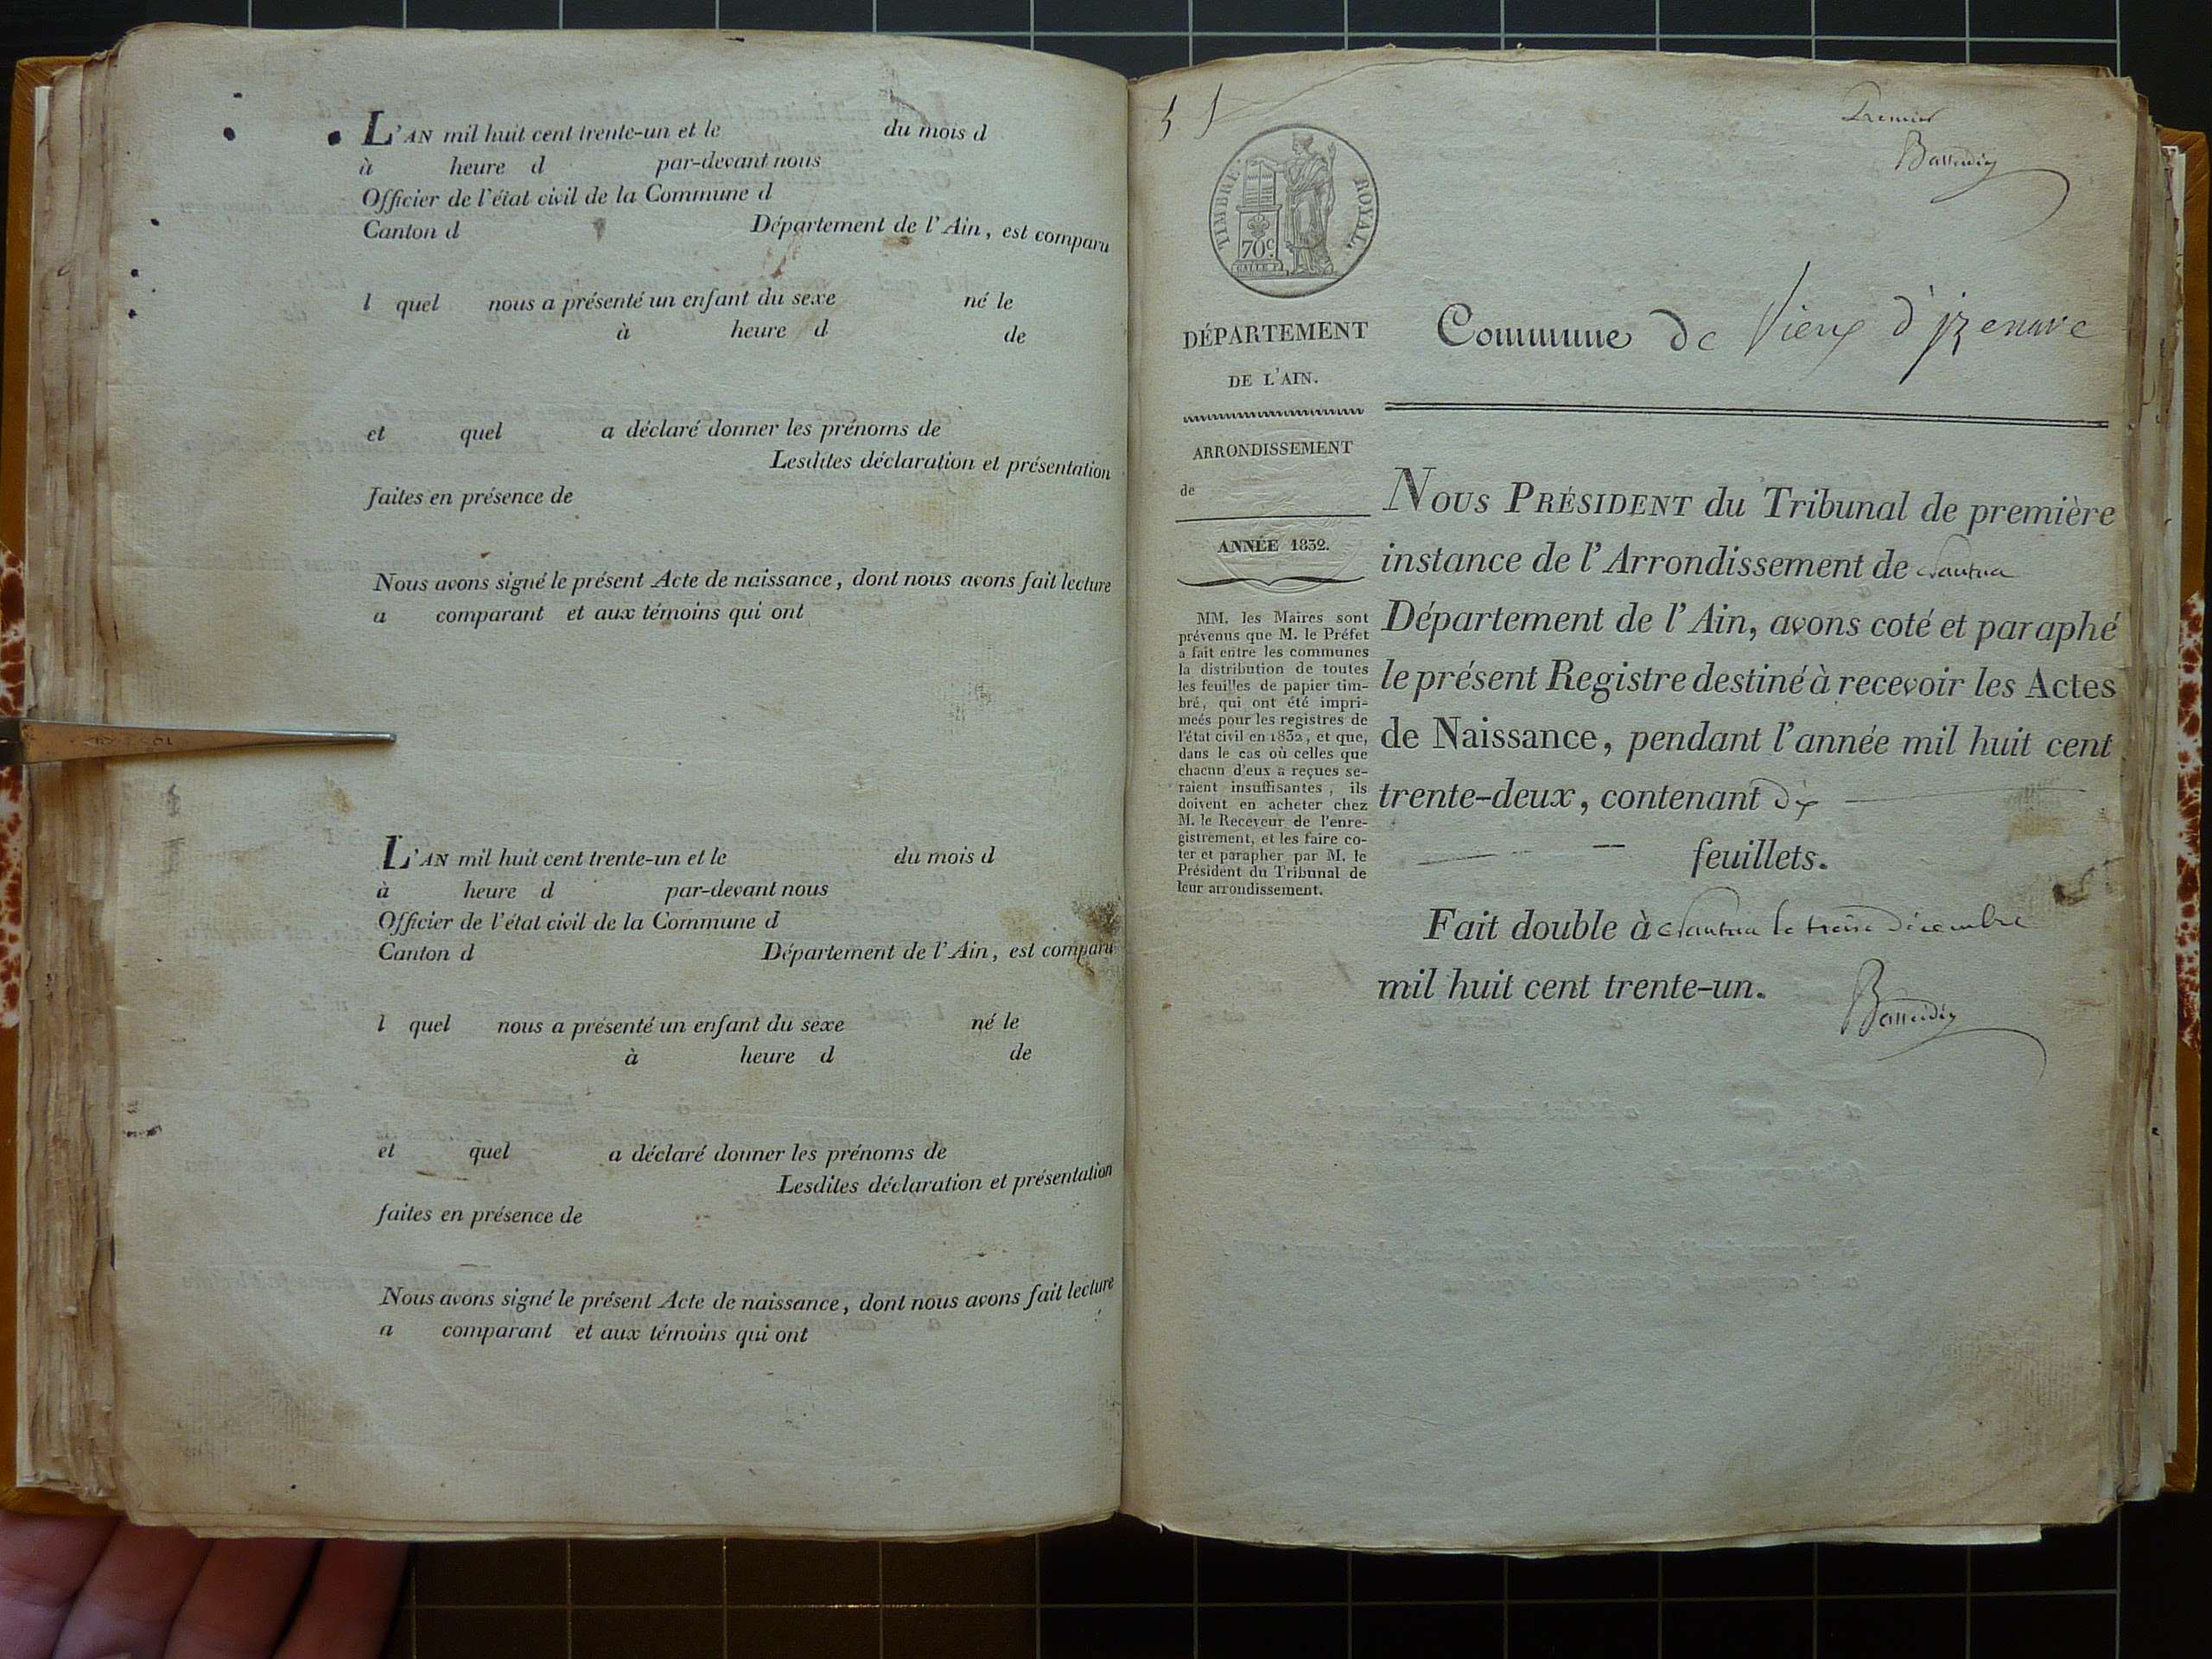 L'AN mil huit cent trente-un et le du mois d
à heure d par-devant nous
Officier de l'état civil de la Commune d
Canton d Département de l'Ain, est comparu
l quel nous a présenté un enfant du sexe né le
à heure d de
et quel a déclaré donner les prénoms de
Lesdites déclaration et présentation
faites en présence de
Nous avons signé le présent Acte de naissance, dont nous avons fait lecture
a comparant et aux témoins qui ont
L'AN mil huit cent trente-un et le du mois d
à heure d par-devant nous
Officier de l'état civil de la Commune d
Canton d Département de l'Ain, est comparu
l quel nous a présenté un enfant du sexe né le
à heure d de
et quel a déclaré donner les prénoms de
Lesdites déclaration et présentation
faites en présence de
Nous avons signé le présent Acte de naissance, dont nous avons fait lecture
a comparant et aux témoins qui ont
Premier
TIMBRE ROYAL.
70c.
DÉPARTEMENT
DE L'AIN.
ARRONDISSEMENT
de
ANNÉE 1832.
MM. les Maires sont
prévenus que M. le Préfet
a fait entre les communes
la distribution de toutes
les feuilles de papier tim-
bré, qui ont été impri-
meés pour les registres de
l'état civil en 1832, et que,
dans le cas où celles que
chacun d'eux a reçues se-
raient insuffisantes, ils
doivent en acheter chez
M. le Receveur de l'enre-
gistrement, et les faire co-
ter et parapher par M. le
Président du Tribunal de
leur arrondissement.
Commune de Vieux d'izenave
NOUS PRÉSIDENT du Tribunal de première
instance de l'Arrondissement de Nantua
Département de l'Ain, avons coté et paraphé
le présent Registre destiné à recevoir les Actes
de Naissance, pendant l'année mil huit cent
trente-deux, contenant dix
feuillets.
Fait double à Nantua le treize décembre
mil huit cent trente-un.